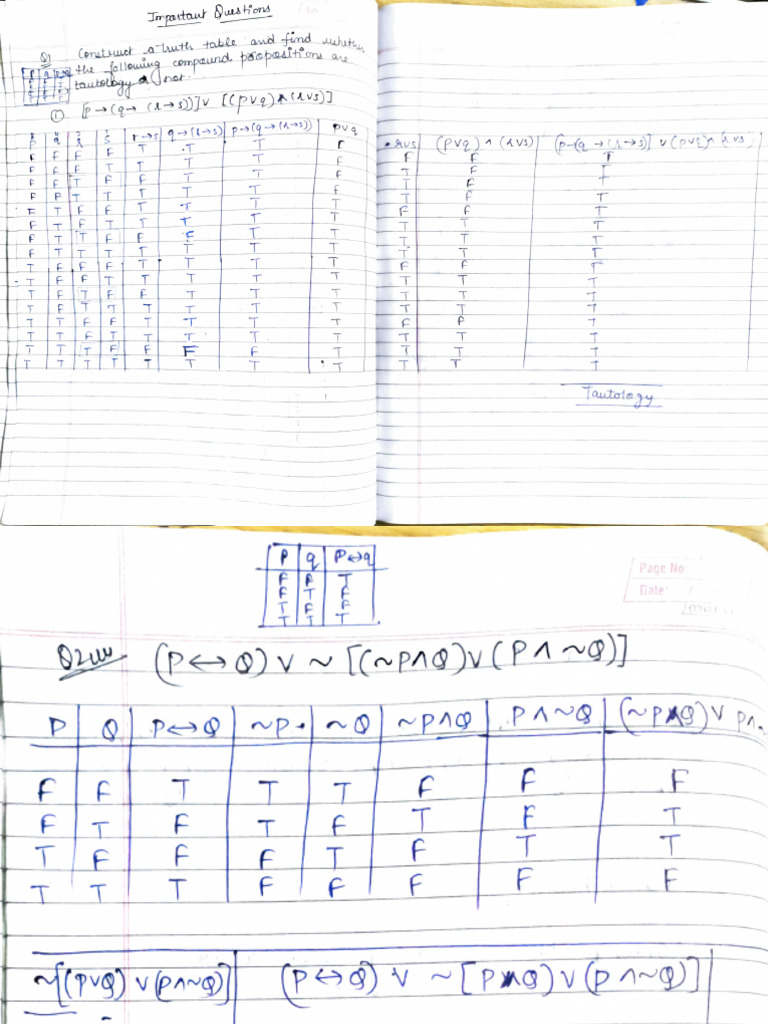 Important Questions
Q1 Construct a truth table and find whether
the following compound propositions are
tautology or not.
p q p→q
① [p→(q→(r→s))]∨[(p∨q)∧(r∨s)]
p q r s r→s q→(r→s) p→(q→(r→s)) p∨q
F F F F T T T F
F F F T T T T F
F F T F F T T F
F F T T T T T F
F T F F T T T T
F T F T T T T T
F T T F F F T T
F T T T T T T T
T F F F T T T T
T F F T T T T T
T F T F F T T T
T F T T T T T T
T T F F T T T T
T T F T T T T T
T T T F F F F T
T T T T T T T T
r∨s (p∨q)∧(r∨s) (p→(q→(r→s)] ∨(p∨q)∧(r∨s)
F F T
T F T
T F T
T F T
F F T
T T T
T T T
T T T
F F T
T T T
T T T
T T T
F F T
T T T
T T T
T T T
Tautology
P q P↔q
F F T
F T F
T F F
T T T
Page No
Date: /
Q2 (P↔Q)∨~[(~P∧Q)∨(P∧~Q)]
P Q P↔Q ~P ~Q ~P∧Q P∧~Q (~P∧Q)∨ P∧~
F F T T T F F F
F T F T F T F T
T F F F T F T T
T T T F F F F F
~[(P∨Q)∨(P∧~Q)] (P↔Q) ∨ ~[P∧Q)∨(P∧~Q)]